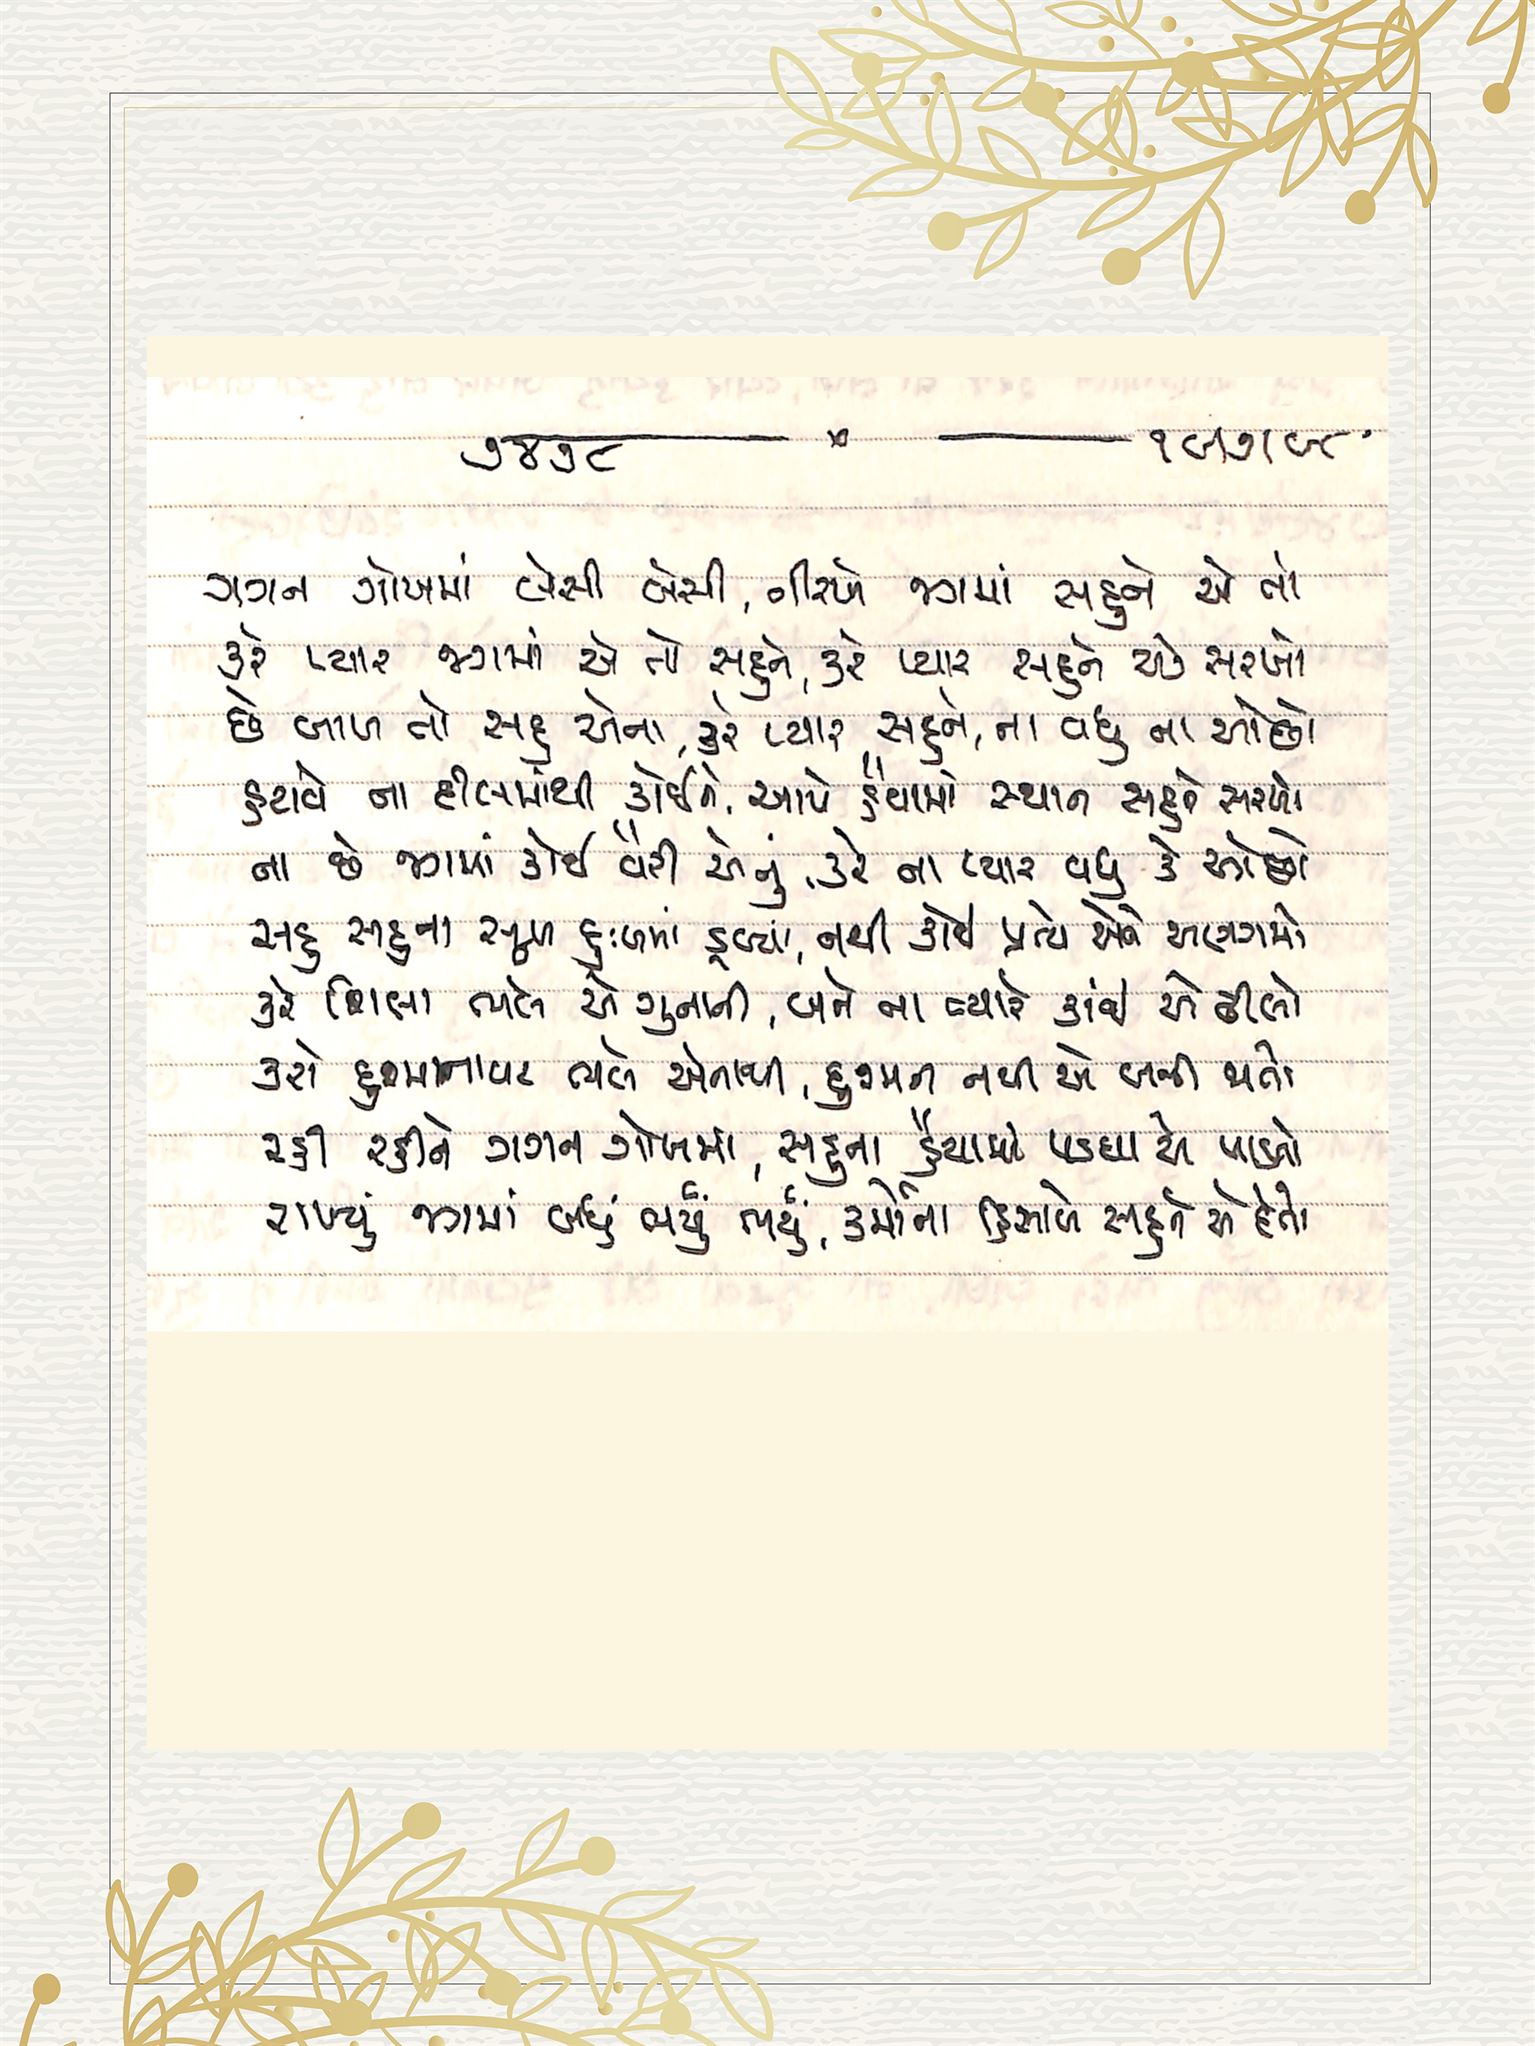 ૭૪૭૮
ગગન ગોખમાં બેસી બેસી, નીરખે જગમાં સહુને એ તો
કરે પ્યાર જગમાં એ તો સહુને, કરે પ્યાર સહુને એ સરખો
છે બાળ તો સહુ એના, કરે પ્યાર સહુને, ના વધુ ના ઓછો
હટાવે ના દીલમાંથી કોઈને, આપે હૈયામાં સ્થાન સહુને સરખો
ના છે જગમાં કોઈ વૈરી એનું, કરે ના પ્યાર વધુ કે ઓછો
સહુ સહુના સુખ દુઃખમાં ડૂબ્યાં, નથી કોઈ પ્રત્યે એને અણગમો
કરે શિક્ષા ભલે એ ગુનાની, બને ના ત્યારે કાંઈ એ ઢીલો
કરો દુશ્માનાવટ ભલે એનાથી, દુશ્મન નથી એ બની જતો
રહી રહીને ગગન ગોખમાં, સહુના હૈયામાં પડઘા એ પાડતો
રાખ્યું જગમાં બધું ભર્યું ભર્યું, કર્મોના હિસાબે સહુને એ દેતો